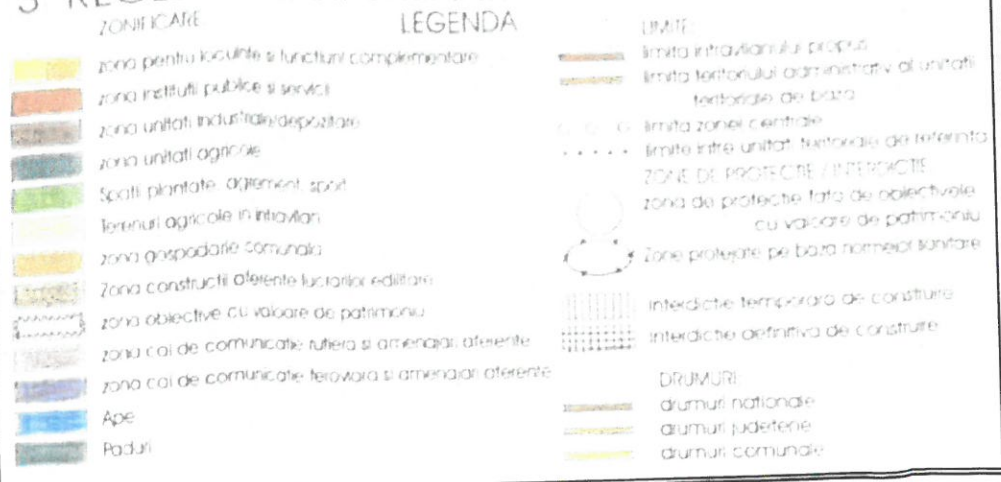 3 REGLE
LEGENDA
ZONIFICARE
zona pentru locuinte si functiuni complementare
zona institutii publice si servicii
zona unitati industriale/depozitare
zona unitati agricole
Spatii plantate, agrement, sport
Terenuri agricole in intravilan
zona gospodarie comunala
Zona constructii aferente lucrarilor edilitare
zona obiective cu valoare de patrimoniu
zona cai de comunicatie rutiera si amenajari aferente
zona cai de comunicatie feroviara si amenajari aferente
Ape
Paduri
LIMITE:
limita intravilanului propus
limita teritoriului administrativ al unitatii
teritoriale de baza
limita zonei centrale
limite intre unitati teritoriale de referinta
ZONE DE PROTECTIE / INTERDICTIE
zona de protectie fata de obiectivele
cu valoare de patrimoniu
Zone protejate pe baza normelor sanitare
Interdictie temporara de construire
Interdictie definitiva de construire
DRUMURI:
drumuri nationale
drumuri judetene
drumuri comunale